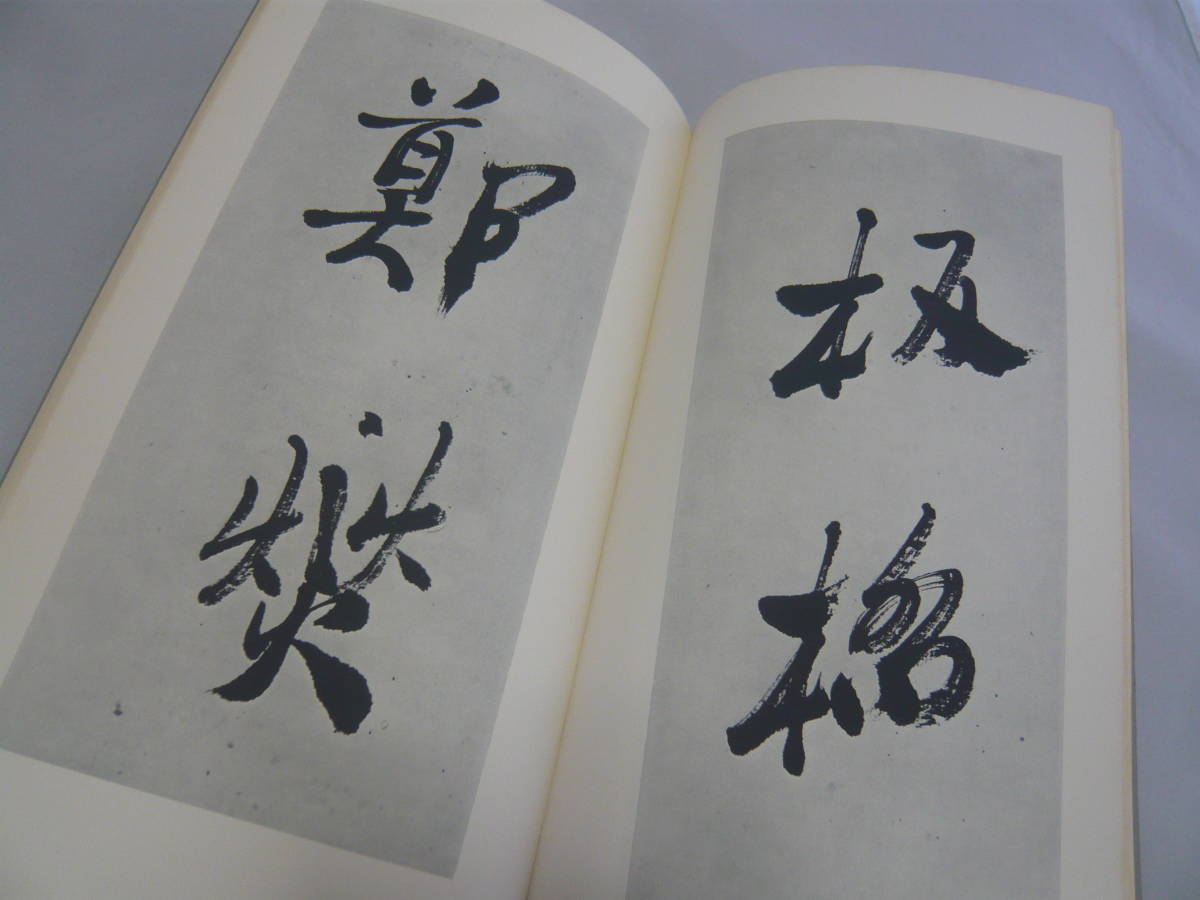 板橋
鄭燮